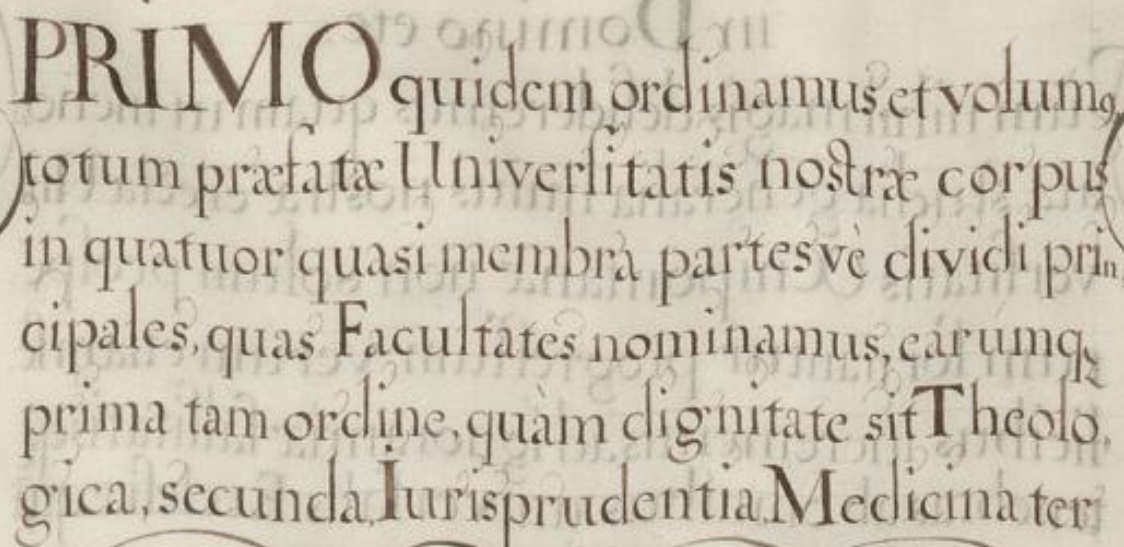 PRIMO quidem ordinamus et volumꝰ
totum præfatæ Universitatis nostræ corpus
in quatuor quasi membra partesvè dividi prin
cipales, quas Facultates nominamus, earumq́ꝫ
prima tam ordine, quàm dignitate sit Theolo,
gica, secunda Iurisprudentia Medicina ter